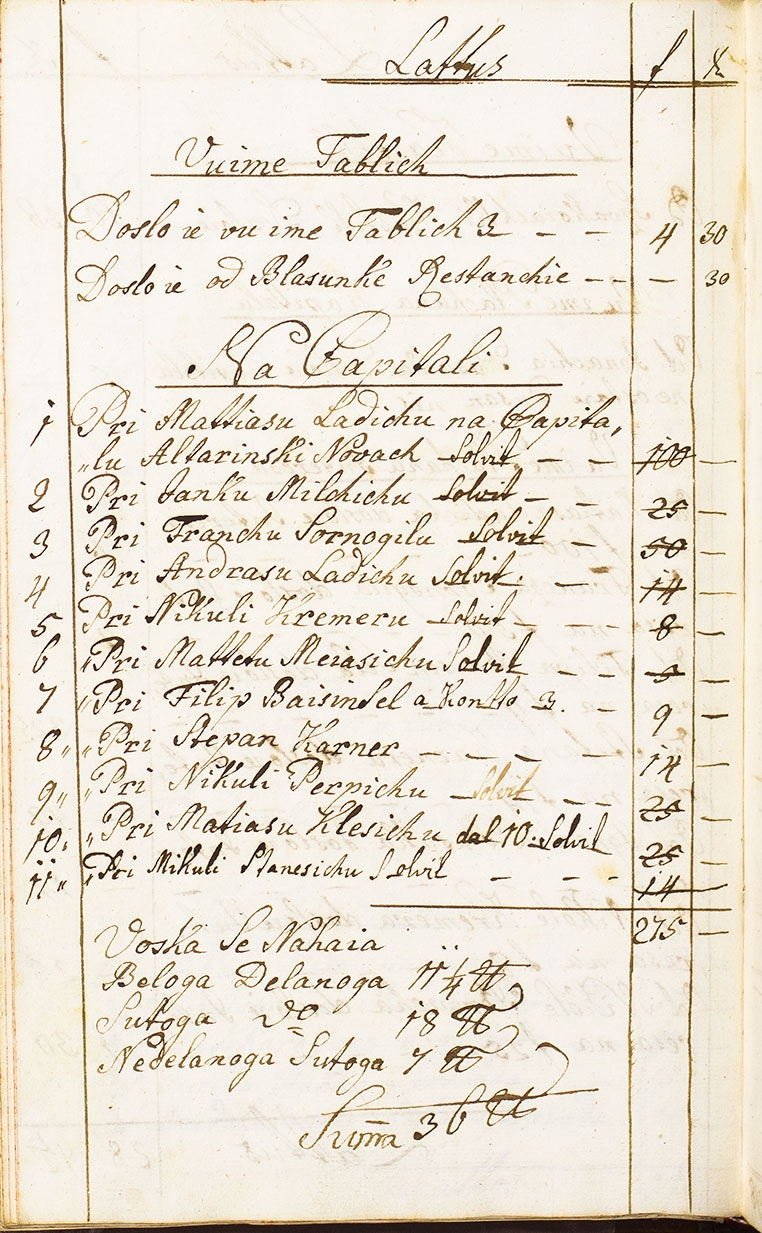 Lattus f x
Vu ime Tablich
Doslo ie vu ime Tablich 3 – – 4 30
Doslo ie od Blasunke Restanchie – – – 30
Na Capitali
1 Pri Mattiasu Ladichu na Capita„
„lu Altarinski Novach Solvit – – 100 –
2 Pri Janku Milchichu Solvit – – 25 –
3 Pri Franchu Sornogilu Solvit – 50 –
4 Pri Andrasu Ladichu Solvit. – 14 –
5 Pri Nikuli Kremeru Solvit – – – 8 –
6 „Pri Mattetu Meiasichu Solvit – – 5 –
7 „Pri Filip Baisinsel a Kontto 3. – 9 –
8„ „Pri Stepan Karner – – – – 14 –
9„ „Pri Nikuli Perpichu Solvit – – 25 –
10„ „Pri Matiasu Klesichu dal 10. Solvit 25 –
11„ „Pri Mikuli Stanesichu Solvit – – – 14 –
275 –
Voska Se Nahaia
Beloga Delanoga 11 1/4 ℔
Sutoga do 18 ℔
Nedelanoga Sutoga 7 ℔
Sum̅a 36 ℔